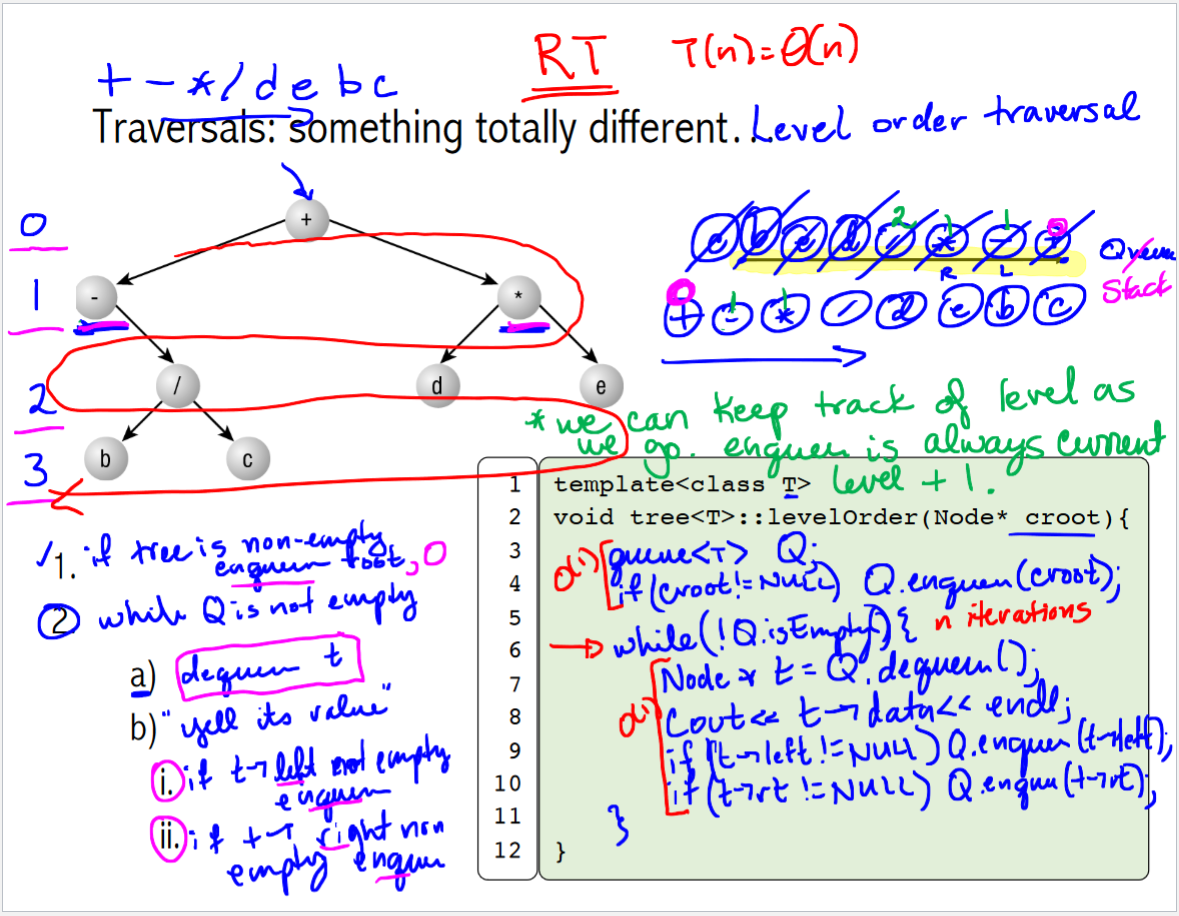 RT T(n)=Θ(n)
+ - * / d e b c
Traversals: something totally different. Level order traversal
+
0
- *
1
/ d e
2
b c
3
c b e d / 2 * 1 - 1 + 0
R L
Queue
Stack
0 1 1
+ - * / d e b c
* we can keep track of level as
we go. enqueu is always current
level + 1.
1. if tree is non-empty
enqueu root, 0
2 while Q is not empty
a) dequeu t
b) "yell its value"
i. if t→left not empty
enqueu
ii. if t→right non
empty enqueu
1 template<class T>
2 void tree<T>::levelOrder(Node* croot){
3 O(1) queue<T> Q;
4 if(croot!=NULL) Q.enqueu(croot);
5
6 while(!Q.isEmpty){ n iterations
7 Node * t = Q.dequeu();
8 O(1) cout<< t→data<< endl;
9 if(t→left !=NULL) Q.enqueu(t→left);
10 if(t→rt !=NULL) Q.enquu(t→rt);
11 }
12 }